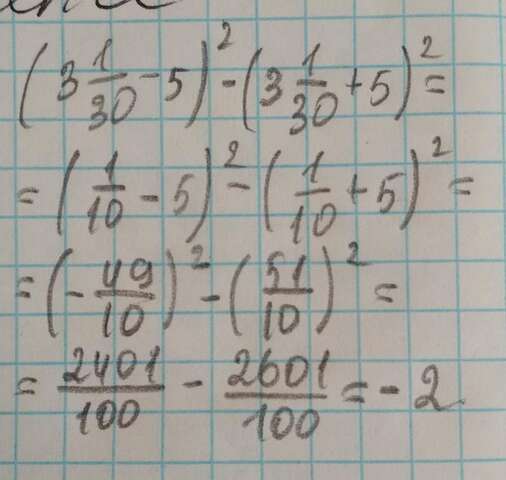 (3 1/30 - 5)² - (3 1/30 + 5)² =
= (1/10 - 5)² - (1/10 + 5)² =
= (- 49/10)² - (51/10)² =
= 2401/100 - 2601/100 = - 2